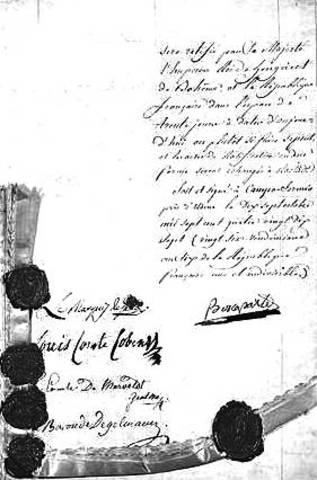 sera ratifié par Sa Majesté
l'Empereur Roi de Hongrie et
de Bohême et la République
française dans l'espace de
trente jours à dater d'aujour
d'hui ou plutôt si faire se peut
et les actes de ratification en due
forme seront échangés à Rastadt
fait et signé à Campo-Formio
près d'Udine le dix sept octobre
mil sept cent quatre vingt dix
sept (vingt six vendémiaire
an six de la République
française une et indivisible)
Le Marquis de Gallo
Bonaparte
Louis Comte Cobenzl
Comte De Merveldt
Général
Baron de Degelmann